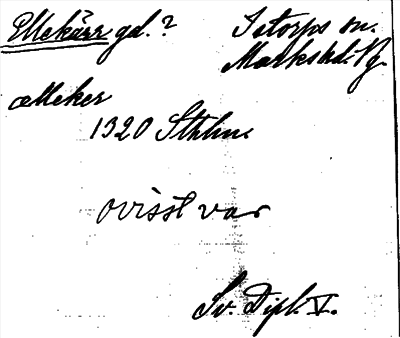 Ellekärr gd.? Istorps sn.
Markshd. Vg.
ælleker
1320 Sthlm
ovisst var
Sv. Dipl. V.